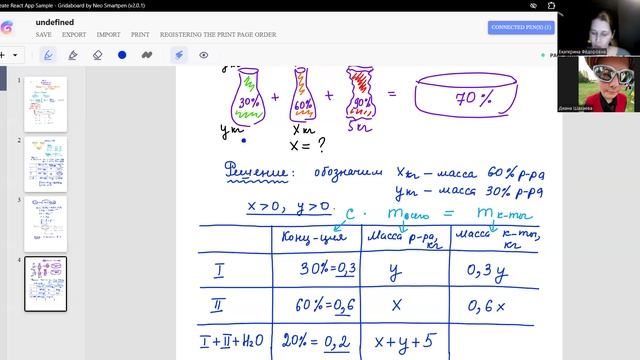 eate React App Sample - Gridaboard by Neo Smartpen (v2.0.1)
undefined
SAVE EXPORT IMPORT PRINT REGISTERING THE PRINT PAGE ORDER
CONNECTED PEN(S) (1)
Екатерина Фёдоровна
Диана Шахаева
1
2
3
4
30% + 60% + 90% = 70%
y кг x кг 5 кг
x = ?
Решение: обозначим x кг – масса 60% р-ра
y кг – масса 30% р-ра
x > 0, y > 0.
c · m всего = m к-ты
Конц-ция Масса р-ра, кг Масса к-ты, кг
I 30% = 0,3 y 0,3 y
II 60% = 0,6 x 0,6 x
I + II + H2O 20% = 0,2 x + y + 5